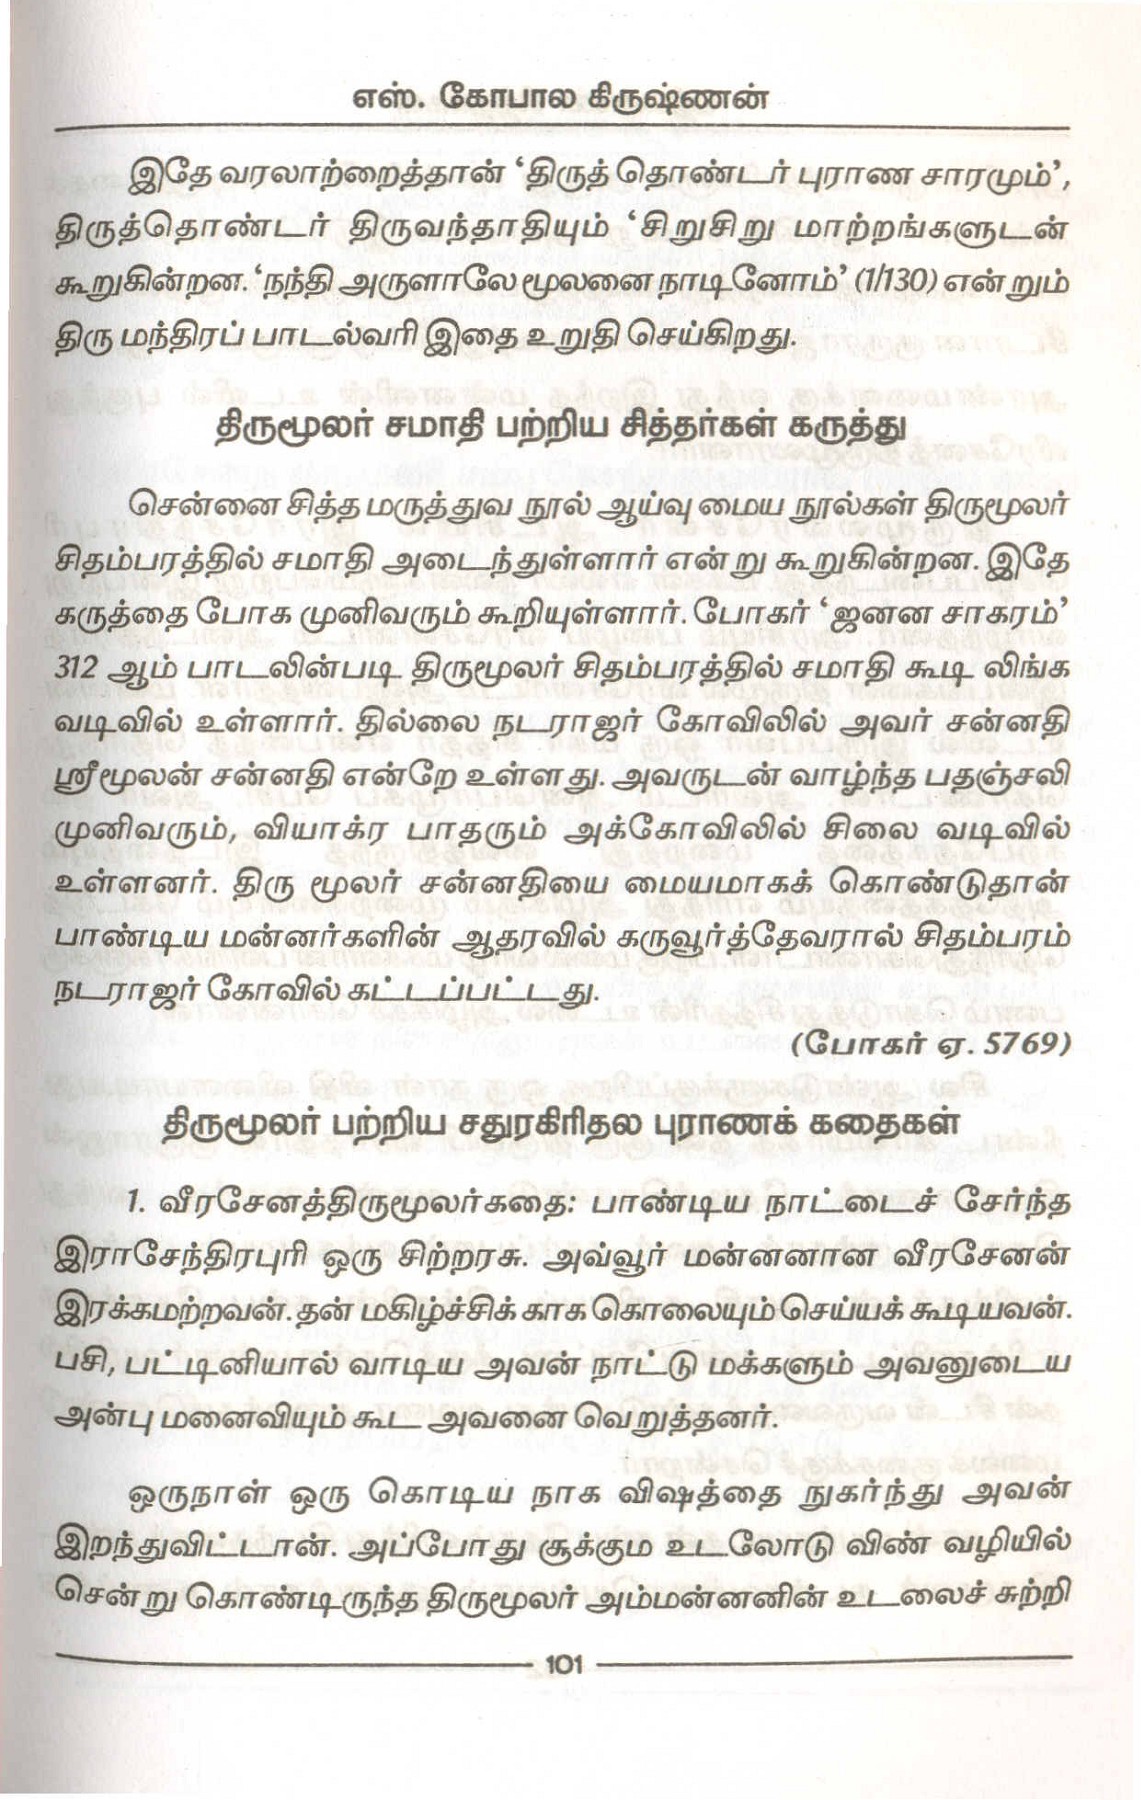 எஸ். கோபால கிருஷ்ணன்
இதே வரலாற்றைத்தான் ‘திருத் தொண்டர் புராண சாரமும்’,
திருத்தொண்டர் திருவந்தாதியும் ‘சிறுசிறு மாற்றங்களுடன்
கூறுகின்றன. ‘நந்தி அருளாலே மூலனை நாடினோம்’ (1/130) என்றும்
திரு மந்திரப் பாடல்வரி இதை உறுதி செய்கிறது.
திருமூலர் சமாதி பற்றிய சித்தர்கள் கருத்து
சென்னை சித்த மருத்துவ நூல் ஆய்வு மைய நூல்கள் திருமூலர்
சிதம்பரத்தில் சமாதி அடைந்துள்ளார் என்று கூறுகின்றன. இதே
கருத்தை போக முனிவரும் கூறியுள்ளார். போகர் ‘ஜனன சாகரம்’
312 ஆம் பாடலின்படி திருமூலர் சிதம்பரத்தில் சமாதி கூடி லிங்க
வடிவில் உள்ளார். தில்லை நடராஜர் கோவிலில் அவர் சன்னதி
ஸ்ரீமூலன் சன்னதி என்றே உள்ளது. அவருடன் வாழ்ந்த பதஞ்சலி
முனிவரும், வியாக்ர பாதரும் அக்கோவிலில் சிலை வடிவில்
உள்ளனர். திரு மூலர் சன்னதியை மையமாகக் கொண்டுதான்
பாண்டிய மன்னர்களின் ஆதரவில் கருவூர்த்தேவரால் சிதம்பரம்
நடராஜர் கோவில் கட்டப்பட்டது.
(போகர் ஏ. 5769)
திருமூலர் பற்றிய சதுரகிரிதல புராணக் கதைகள்
1. வீரசேனத்திருமூலர்கதை: பாண்டிய நாட்டைச் சேர்ந்த
இராசேந்திரபுரி ஒரு சிற்றரசு. அவ்வூர் மன்னனான வீரசேனன்
இரக்கமற்றவன். தன் மகிழ்ச்சிக் காக கொலையும் செய்யக் கூடியவன்.
பசி, பட்டினியால் வாடிய அவன் நாட்டு மக்களும் அவனுடைய
அன்பு மனைவியும் கூட அவனை வெறுத்தனர்.
ஒருநாள் ஒரு கொடிய நாக விஷத்தை நுகர்ந்து அவன்
இறந்துவிட்டான். அப்போது சூக்கும உடலோடு விண் வழியில்
சென்று கொண்டிருந்த திருமூலர் அம்மன்னனின் உடலைச் சுற்றி
101